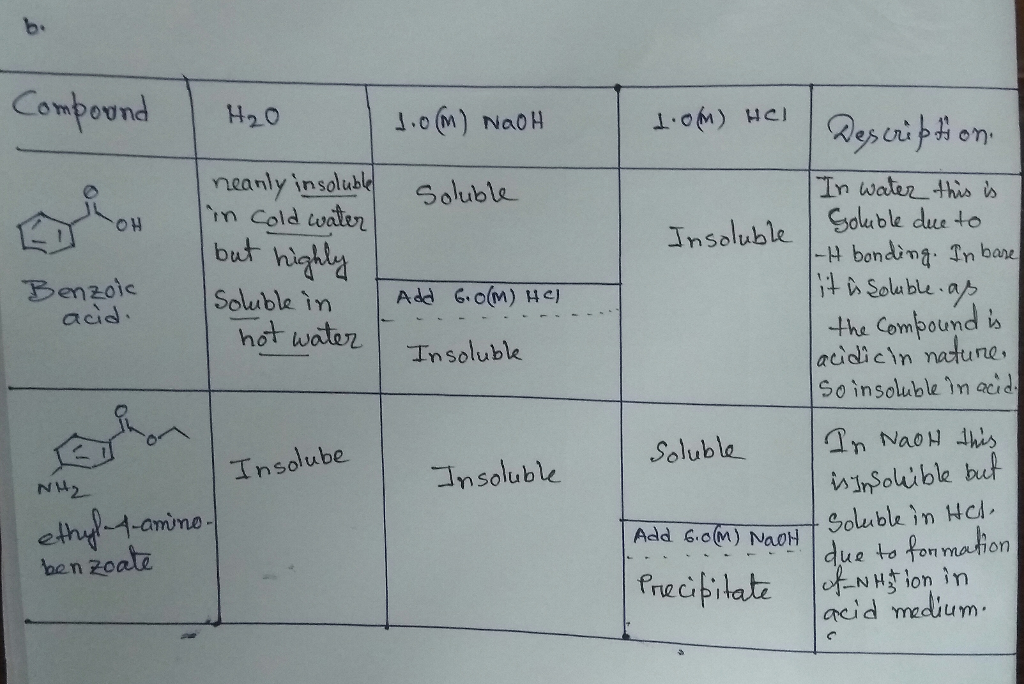 b.
Compound
H2O
1.0(M) NaOH
1.0(M) HCl
Description.
O
OH
Benzoic
acid.
nearly insoluble
in cold water
but highly
Soluble in
hot water
Soluble
Add 6.0(M) HCl
Insoluble
Insoluble
In water this is
Soluble due to
-H bonding. In base
it is Soluble. as
the Compound is
acidic in nature,
So insoluble in acid.
O
O
NH2
ethyl-4-amino-
benzoate
Insolube
Insoluble
Soluble
Add 6.0(M) NaOH
Precipitate
In NaOH this
is Insoluible but
Soluble in HCl.
due to formation
of -NH3+ ion in
acid medium.